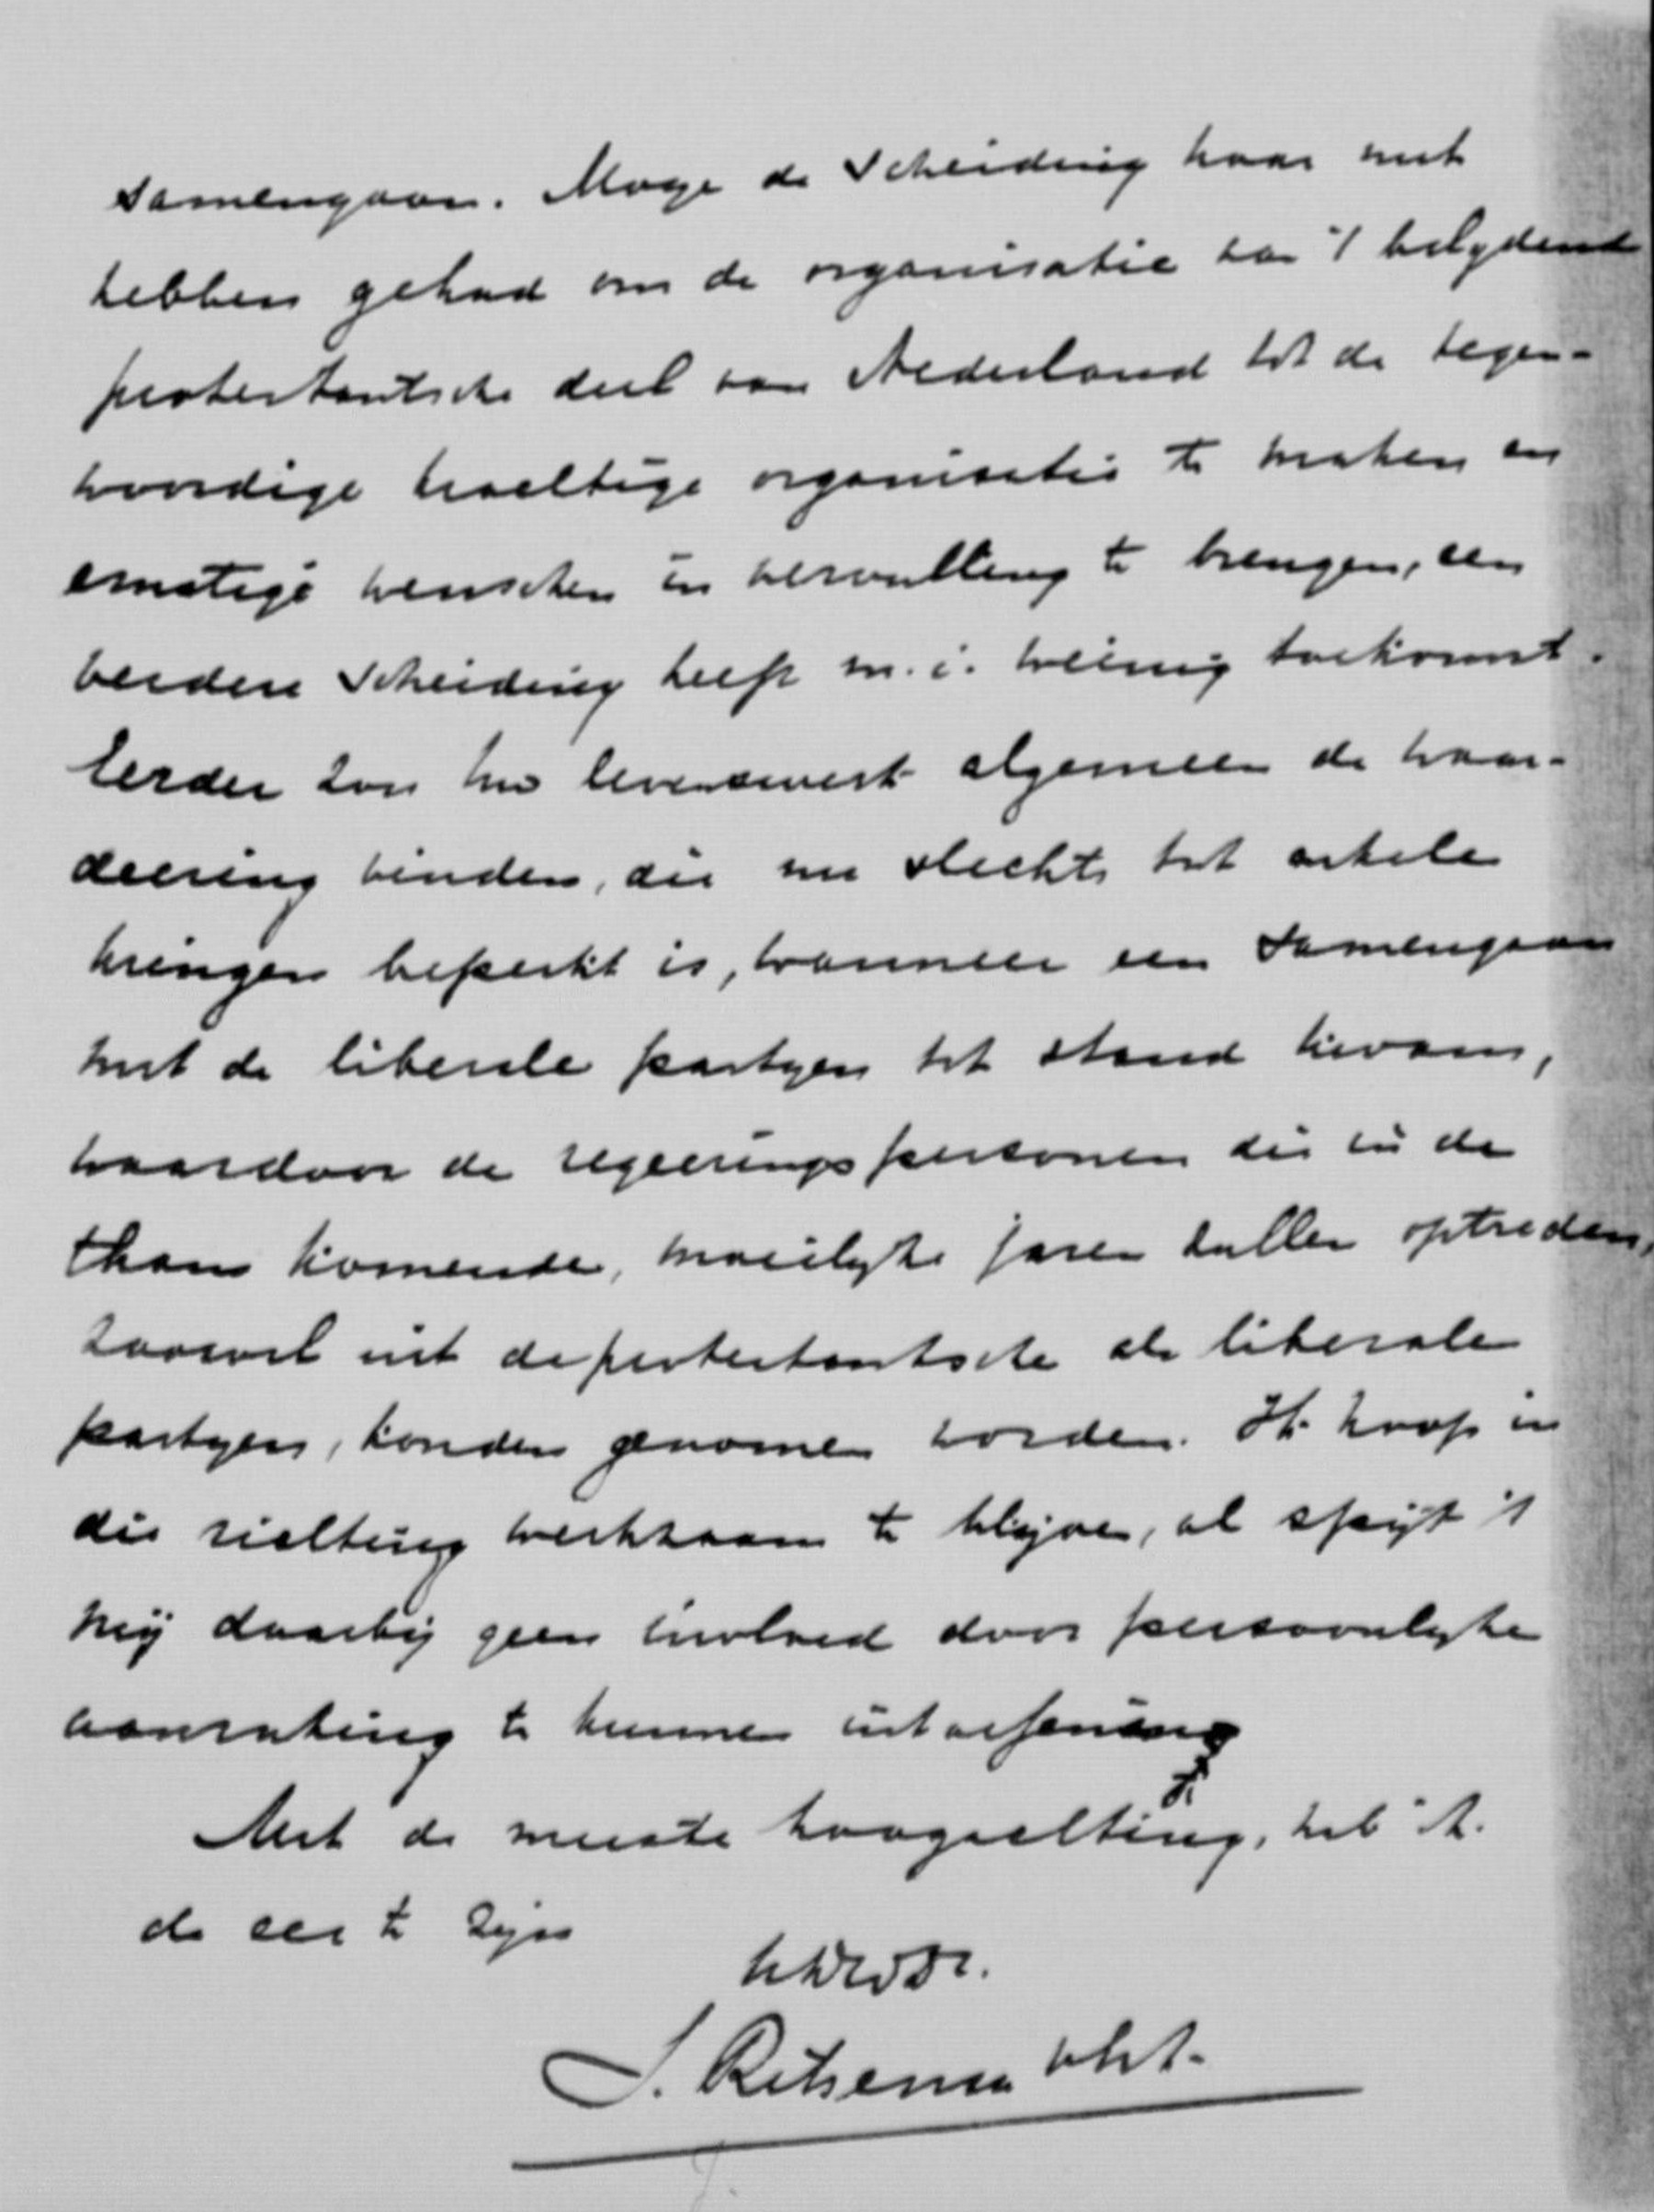 samengaan. Moge de Scheiding haar nut
hebben gehad om de organisatie van 't belydend
protestantsche deel van Nederland tot de tegen-
woordige krachtige organisatie te maken en
ernstige wenschen in vervulling te brengen, een
verdere Scheiding heeft m.i. weinig toekomst.
Eerder zou Uw levenswerk algemeen de waar-
deering vinden, die nu slechts tot enkele
kringen beperkt is, wanneer een Samengaan
met de liberale partyen tot stand kwam,
waardoor de regeeringspersonen die in de
thans komende, moeilyke jaren zullen optreden,
zoowel uit de protestantsche als liberale
partyen, konden genomen worden. Ik hoop in
die richting werkzaam te blijven, al spijt 't
mij daarbij geen invloed door persoonlyke
aanraking te kunnen uitoefenen
Met de meeste hoogachting, heb ik
de eer te zijn
UEdDr.
S. Ritsema